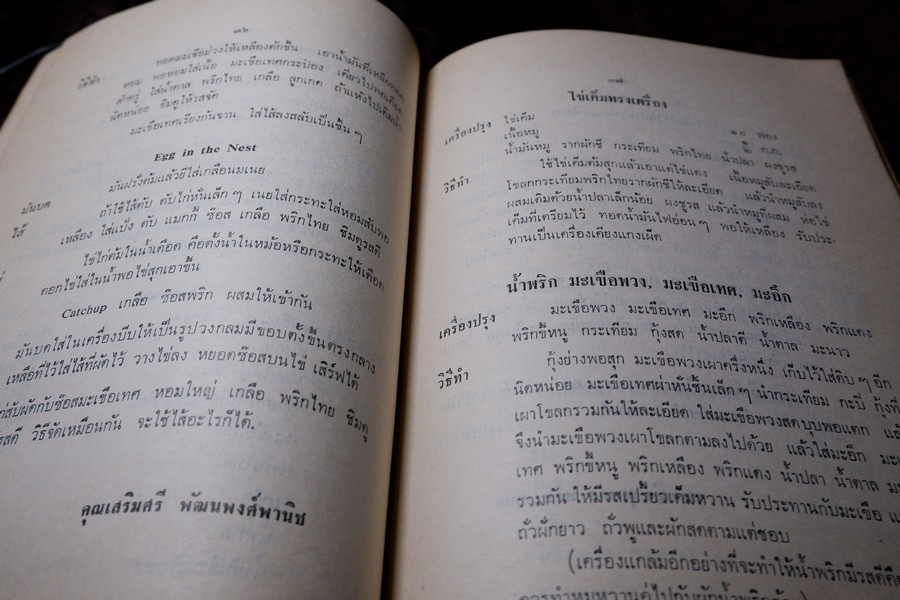 ๓๖
ทอดมะเขือม่วงให้เหลืองตักขึ้น เอาน้ำมันที่เหลือ
วิธีทำ หอม พอหอมใส่เนื้อ มะเขือเทศกระป๋อง เคี่ยวไปพอ
สักครู่ ใส่น้ำตาล พริกไทย เกลือ ลูกเกด ถ้าแห้งไปเติมน้ำ
นิดหน่อย ชิมดูให้รสจัด
มะเขือเทศเรียงก้นจาน ใส่ไส้ลงสลับเป็นชั้น ๆ
Egg in the Nest
มันบด มันฝรั่งต้มแล้วยีใส่เกลือนมเนย
ไส้ ถ้าใช้ไส้ตับ ตับไก่หั่นเล็ก ๆ เนยใส่กระทะใส่หอมสับพอ
เหลือง ใส่แป้ง ตับ แมกกี้ ซ๊อส เกลือ พริกไทย ชิมดูรสดี
ไข่ไก่ต้มในน้ำเดือด คือตั้งน้ำในหม้อหรือกระทะให้เดือด
ตอกไข่ใส่ในน้ำพอไข่สุกเอาขึ้น
Catchup เกลือ ซ๊อสพริก ผสมให้เข้ากัน
มันบดใส่ในเครื่องบีบให้เป็นรูปวงกลมมีขอบตั้งขึ้นตรงกลาง
เหลือที่ไว้ใส่ไส้ที่ผัดไว้ วางไข่ลง หยอดซ๊อสบนไข่ เสิร์ฟได้
สับผัดกับซ๊อสมะเขือเทศ หอมใหญ่ เกลือ พริกไทย ชิมดู
รสดี วิธีจัดเหมือนกัน จะใช้ไส้อะไรก็ได้.
คุณเสริมศรี พัฒนพงศ์พานิช
๓๗
ไข่เค็มทรงเครื่อง
เครื่องปรุง ไข่เค็ม ๑๐ ฟอง
เนื้อหมู ๒ ก.ก.
น้ำมันหมู รากผักชี กระเทียม พริกไทย น้ำปลา ผงชูรส
วิธีทำ ใช้ไข่เค็มต้มสุกแล้วเอาแต่ไข่แดง เนื้อหมูสับละเอียด
โขลกกระเทียมพริกไทยรากผักชีให้ละเอียด แล้วนำหมูสับลง
ผสมเติมด้วยน้ำปลาเล็กน้อย ผงชูรส แล้วนำหมูที่ผสม ห่อไข่
เค็มที่เตรียมไว้ ทอดน้ำมันไฟอ่อน ๆ พอให้เหลือง รับประ-
ทานเป็นเครื่องเคียงแกงเผ็ด
น้ำพริก มะเขือพวง, มะเขือเทศ, มะอึก
เครื่องปรุง มะเขือพวง มะเขือเทศ มะอึก พริกเหลือง พริกแดง
พริกขี้หนู กระเทียม กุ้งสด น้ำปลาดี น้ำตาล มะนาว
วิธีทำ กุ้งย่างพอสุก มะเขือพวงเผาครึ่งหนึ่ง เก็บไว้ใส่ดิบ ๆ อีก
นิดหน่อย มะเขือเทศผ่าหั่นชิ้นเล็ก ๆ นำกระเทียม กะปิ กุ้งที่
เผาโขลกรวมกันให้ละเอียด ใส่มะเขือพวงสดบุบพอแตก
จึงนำมะเขือพวงเผาโขลกตามลงไปด้วย แล้วใส่มะอึก
เทศ พริกขี้หนู พริกเหลือง พริกแดง น้ำปลา น้ำตาล
รวมกัน ให้มีรสเปรี้ยวเค็มหวาน รับประทานกับมะเขือ
ถั่วฝักยาว ถั่วพูและผักสดตามแต่ชอบ
(เครื่องแกล้มอีกอย่างที่จะทำให้น้ำพริกมีรสดี